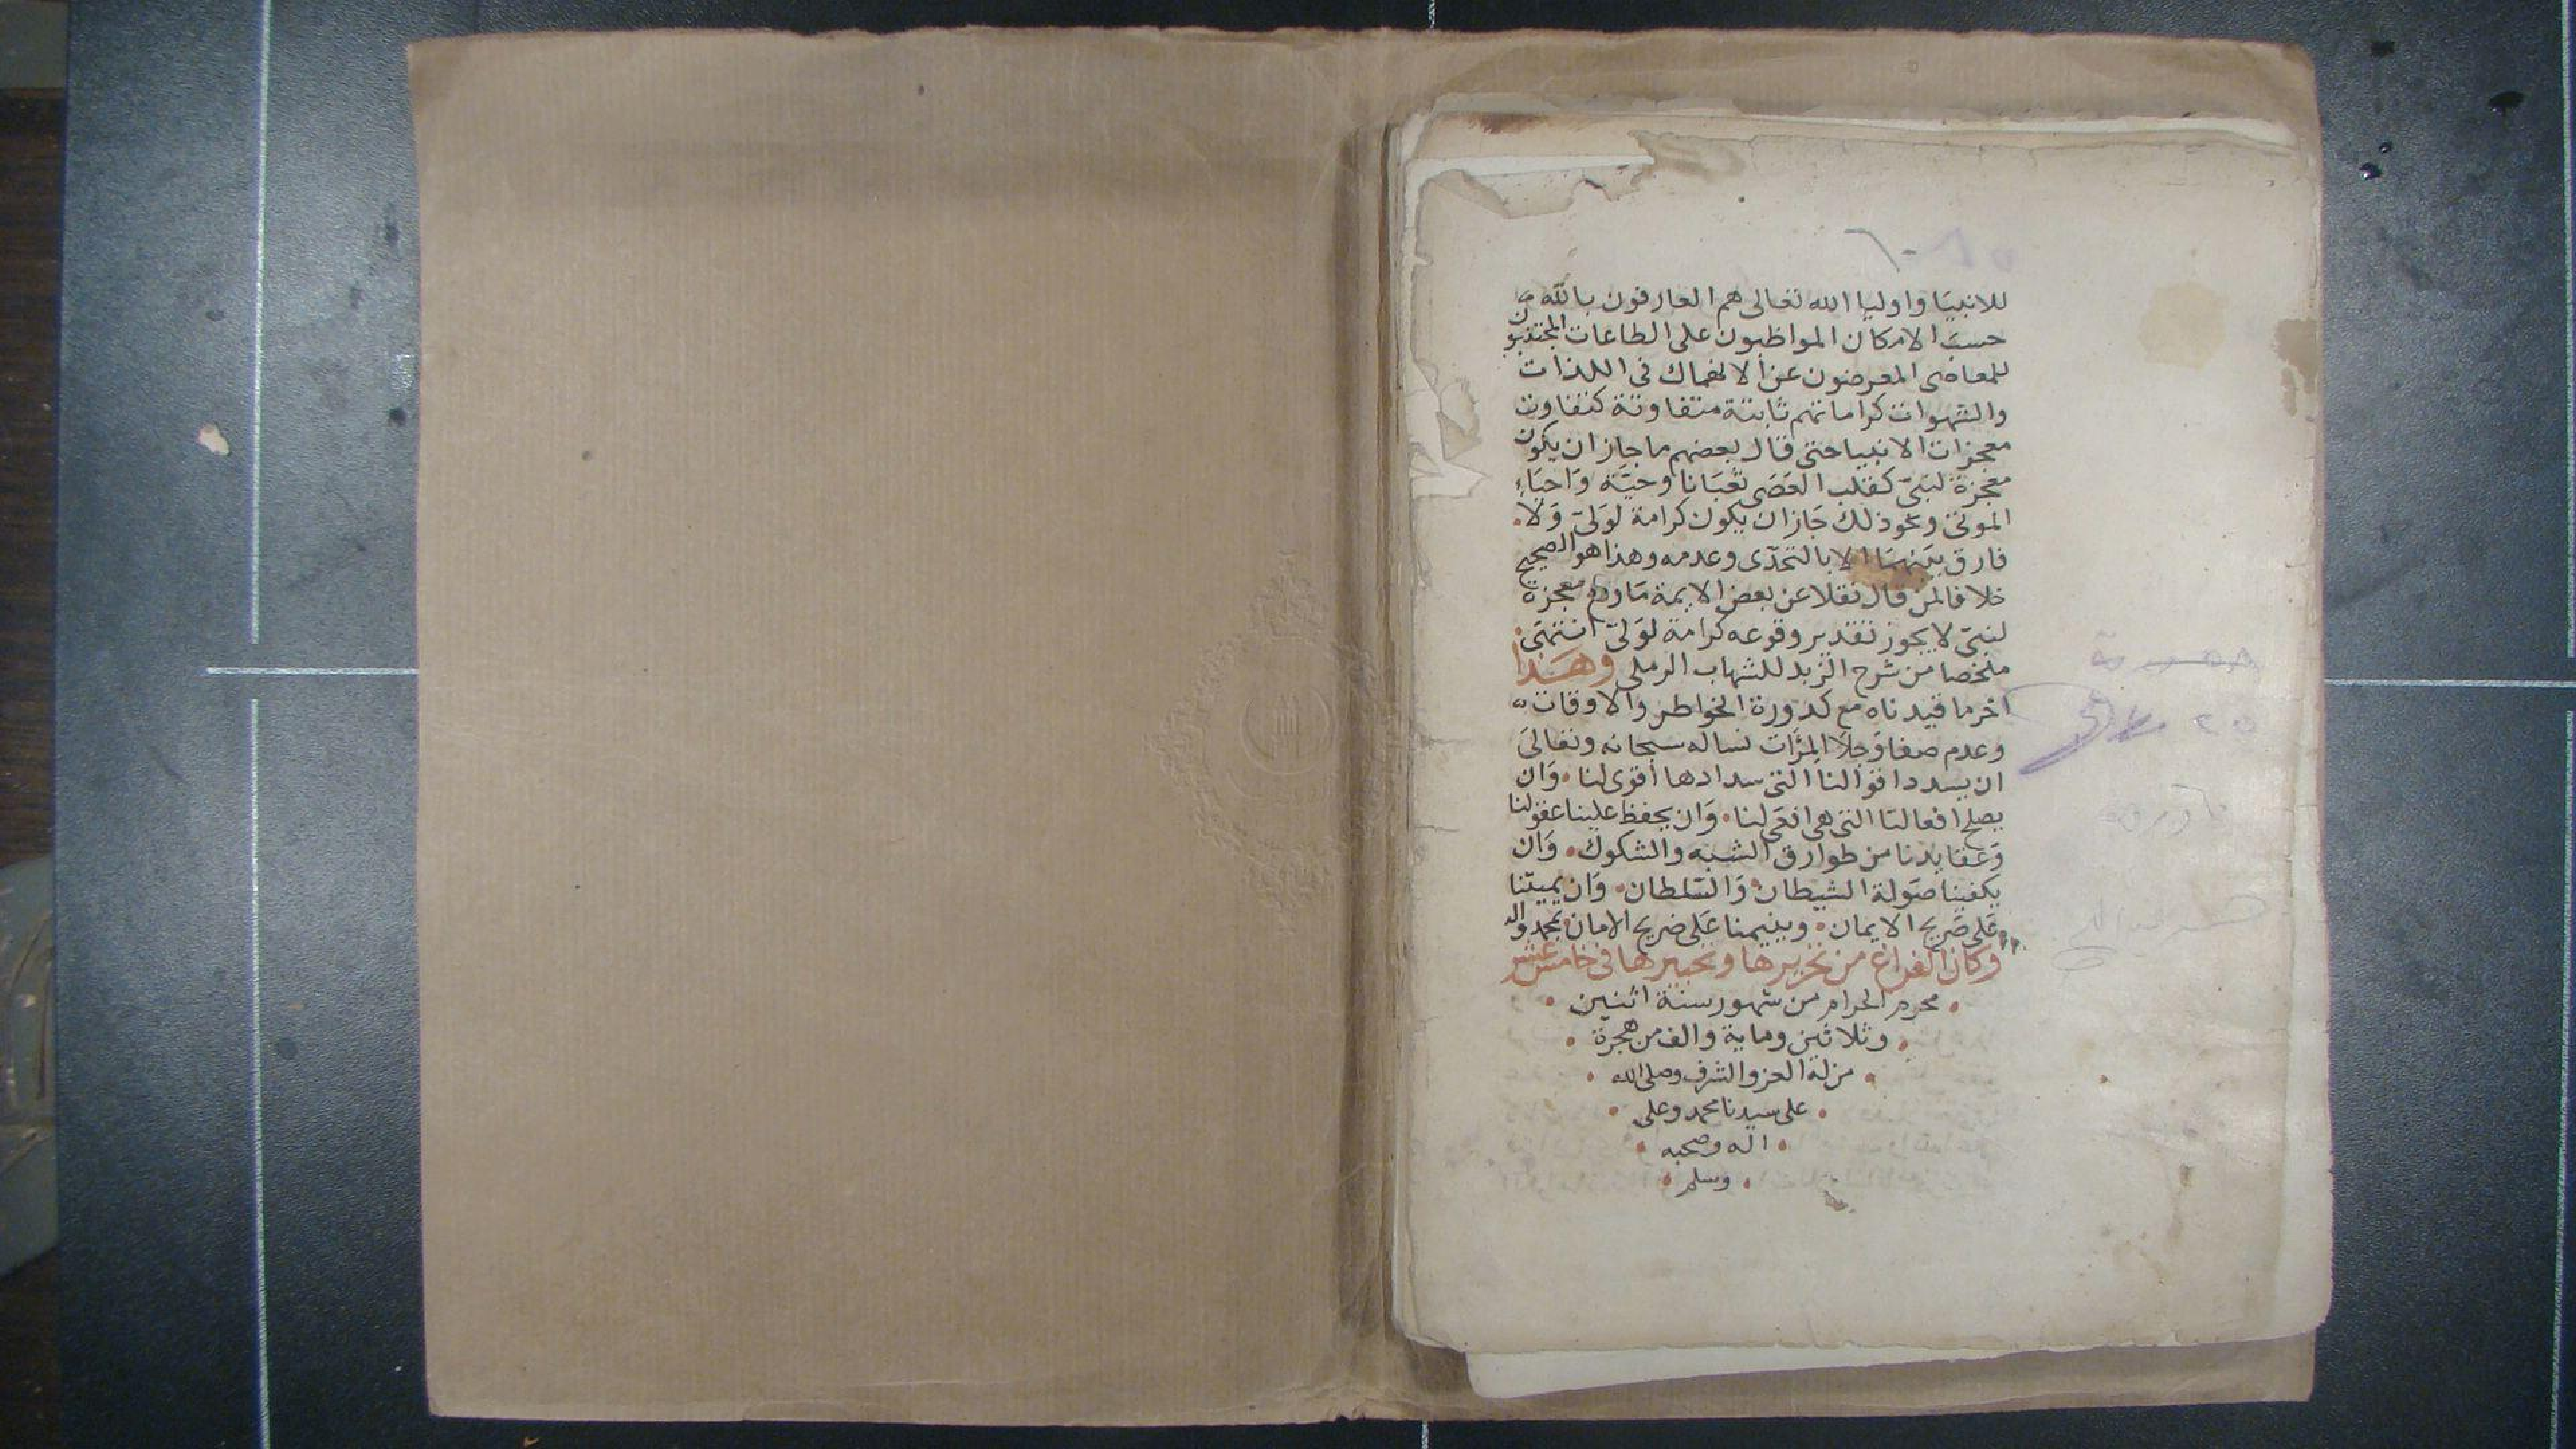 للانبيا واوليا الله تعالى هم العارفون بالله
حسب الامكان المواظبون على الطاعات المجتنبون
للمعاصى المعرضون عن الانهماك فى اللذات
والشهوات كراماتهم ثابتة متفاوتة كتفاوت
معجزات الانبيا حتى قال بعضهم ما جاز ان يكون
معجزة لنبىّ كقلب العَصَى ثعبَانا وحيَّة وَاحيَاء
الموتى ونحو ذلك جَاز ان يكون كرامة لوَلىّ وَلا
فارق بيَنهمَا الا بالتحدّى وعدمه وهذا هو الصحيح
خلافا لمن قال نقلا عن بعض الايمة مَا وقع معجزة
لنبىّ لا يجوز تقدير وقوعه كرامة لوَلىّ انتهَى
ملخصا من شرح الزبد للشهاب الرملى وهَـذا
اخر ما قيدناه مع كدورة الخواطر والاوقات
وعدم صفا وَجلا المرَآت نساله سبحانه وتعالىَ
ان يسدد اقوالنا التى سدادها أقوى لنا وَان
يصلح افعالنا التى هى افعَى لنا وَان يحفظ علينا عقولنا
وَعقايدنا من طوارق الشبه والشكوك وَان
يكفينا صَولة الشيطان وَالسّلطان وَان يميتنا
عَلى صَريح الايمان وينيمنا عَلى ضريح الامان بمحمد واله
وكان الفراغ من تحريرها وتحبيرها فى خامس عشر
محرم الحرام من شهور سنة اثنين
وثلاثين وماية والف من هجرة
من له العز والشرف وصلى الله
على سيدنا محمد وعلى
اله وصحبه
وسلم